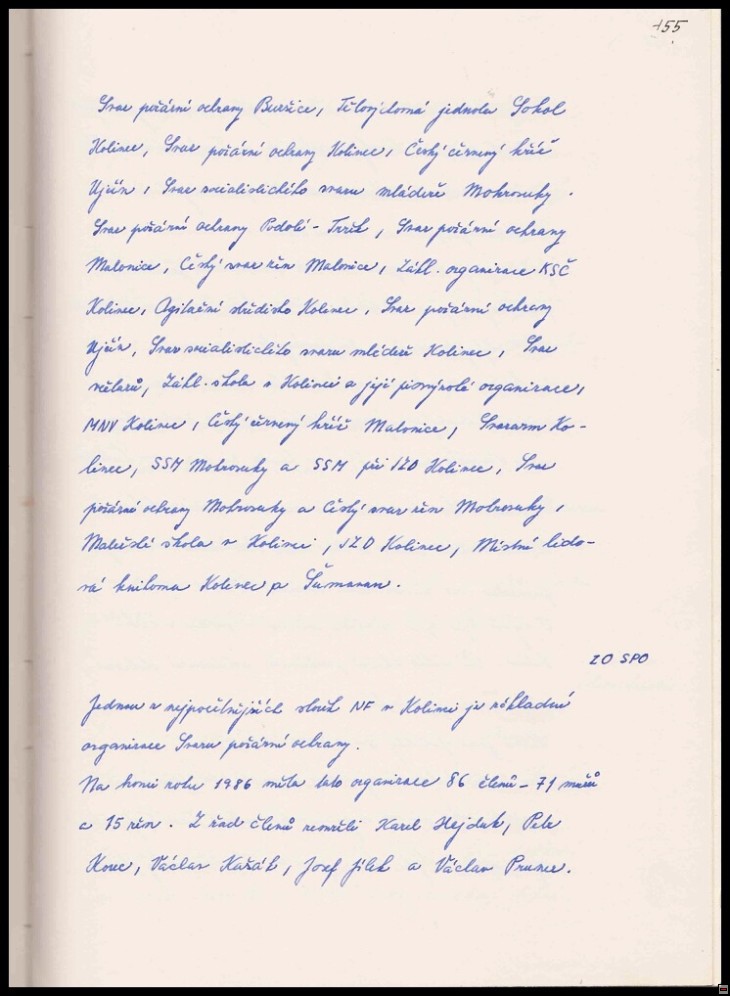 155
Svaz požární ochrany Buršice, Tělovýchovná jednota Sokol
Kolinec, Svaz požární ochrany Kolinec, Český červený kříž
Ujčín, Svaz socialistického svazu mládeže Mokrosuky.
Svaz požární ochrany Podolí - Tvrk, Svaz požární ochrany
Malonice, Český svaz žen Malonice, Zákl. organizace KSČ
Kolinec, Agitační středisko Kolinec, Svaz požární ochrany
Ujčín, Svaz socialistického svazu mládeže Kolinec, Svaz
včelařů, Zákl. škola v Kolinci a její pionýrská organizace,
MNV Kolinec, Český červený kříž Malonice, Svazarm Ko-
linec, SSM Mokrosuky a SSM při JZD Kolinec, Svaz
požární ochrany Mokrosuky a Český svaz žen Mokrosuky,
Mateřská škola v Kolinci, JZD Kolinec, Místní lido-
vá knihovna Kolinec a Šumavan.
ZO SPO
Jednou z nejpočetnějších složek NF v Kolinci je základní
organizace Svazu požární ochrany.
Na konci roku 1986 měla tato organizace 86 členů - 71 mužů
a 15 žen. Z řad členů zemřeli Karel Hejduk, Petr
Kouc, Václav Kažák, Josef Jílek a Václav Pruner.